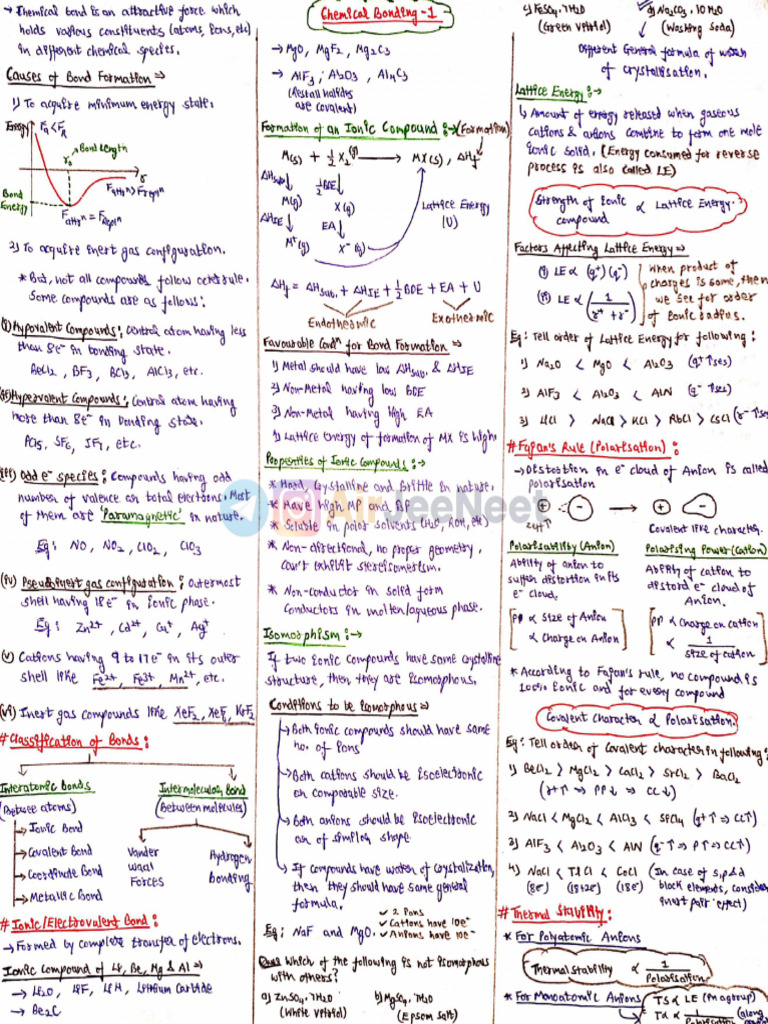 → Chemical bond is an attractive force which
holds various constituents (atoms, ions, etc)
in different chemical species.
Causes of Bond Formation ⇒
1) To acquire minimum energy state.
Energy
F_A < F_R
Bond Length
r₀
r
F_attrn > F_repln
Bond
Energy
F_attrn = F_repln
2) To acquire inert gas configuration.
* But, not all compounds follow octet rule.
Some compounds are as follows:
(i) Hypovalent Compounds: Central atom having less
than 8e⁻ in bonding state.
BeCl₂, BF₃, BCl₃, AlCl₃, etc.
(ii) Hypervalent Compounds: Central atom having
more than 8e⁻ in bonding state.
PCl₅, SF₆, IF₇, etc.
(iii) Odd e⁻ species: Compounds having odd
number of valence or total electrons. Most
of them are 'Paramagnetic' in nature.
Eg: NO, NO₂, ClO₂, ClO₃
(iv) Pseudo inert gas configuration: Outermost
shell having 18e⁻ in ionic phase.
Eg: Zn²⁺, Cd²⁺, Cu⁺, Ag⁺
(v) Cations having 9 to 17e⁻ in its outer
shell like Fe²⁺, Fe³⁺, Mn²⁺, etc.
(vi) Inert gas compounds like XeF₂, XeF₆, KrF₂
# Classification of Bonds:
Interatomic Bonds
(Between atoms)
→ Ionic Bond
→ Covalent Bond
→ Coordinate Bond
→ Metallic Bond
Intermolecular Bond
(Between molecules)
Vander
Waal
Forces
Hydrogen
bonding
# Ionic/Electrovalent Bond:
→ Formed by complete transfer of electrons.
Ionic Compound of Li, Be, Mg & Al ⇒
→ Li₂O, LiF, LiH, Lithium Carbide
→ Be₂C
Chemical Bonding - 1
→ MgO, MgF₂, Mg₂C₃
→ AlF₃, Al₂O₃, Al₄C₃
(Rest all halides
are covalent)
Formation of an Ionic Compound :→ (Formation)
M(s) + ½ X₂(g) → MX(s), ΔHf
ΔHsub ½BDE
M(g) X(g) Lattice Energy
ΔHIE EA (U)
M⁺(g) X⁻(g)
ΔHf = ΔHsub. + ΔHIE + ½BDE + EA + U
Endothermic Exothermic
Favourable Condn for Bond Formation ⇒
1) Metal should have low ΔHsub. & ΔHIE
2) Non-Metal having low BDE
3) Non-Metal having high EA
4) Lattice energy of formation of MX is high.
Properties of Ionic Compounds :→
* Hard, Crystalline and Brittle in nature.
* Have high MP and BP
* Soluble in polar solvents (H₂O, ROH, etc)
* Non-directional, no proper geometry,
can't exhibit stereoisomerism.
* Non-conductor in solid form
Conductors in molten/aqueous phase.
AirJeeNeet
Isomorphism :→
If two ionic compounds have same crystalline
structure, then they are isomorphous.
Conditions to be isomorphous ⇒
→ Both ionic compounds should have same
no. of ions
→ Both cations should be isoelectronic
or comparable size.
→ Both anions should be isoelectronic
or of similar shape
→ If compounds have water of crystallization,
then they should have same general
formula.
Eg: NaF and MgO.
✓ 2 ions
✓ Cations have 10e⁻
✓ Anions have 10e⁻
Ques) Which of the following is not isomorphous
with others?
a) ZnSO₄.7H₂O b) MgSO₄.7H₂O
(White Vitriol) (Epsom Salt)
c) FeSO₄.7H₂O d) Na₂CO₃.10H₂O
(Green Vitriol) (Washing Soda)
Different General formula of water
of crystallisation.
Lattice Energy :→
↳ Amount of energy released when gaseous
cations & anions combine to form one mole
ionic solid. (Energy consumed for reverse
process is also called LE)
Strength of Ionic ∝ Lattice Energy.
compound
Factors Affecting Lattice Energy ⇒
(i) LE ∝ (q⁺)(q⁻)
(ii) LE ∝ (1/r⁺+r⁻)
When product of
charges is same, then
we see for order
of ionic radius.
Eg: Tell order of Lattice Energy for following:
1) Na₂O < MgO < Al₂O₃ (q⁺ ↑ses)
2) AlF₃ < Al₂O₃ < AlN (q⁻ ↑ses)
3) LiCl > NaCl > KCl > RbCl > CsCl (r⁺ ↑ses)
# Fajan's Rule (Polarisation):
→ Distortion in e⁻ cloud of Anion is called
polarisation
+ - → + -
Covalent like character.
Polarisability (Anion)
Ability of anion to
suffer distortion in its
e⁻ cloud.
PP ∝ Size of Anion
∝ Charge on Anion
Polarising Power (Cation)
Ability of cation to
distord e⁻ cloud of
Anion.
PP ∝ Charge on cation
∝ 1/size of cation
* According to Fajan's rule, no compound is
100% ionic and for every compound
Covalent Character ∝ Polarisation.
Eg: Tell order of Covalent character in following:
1) BeCl₂ > MgCl₂ > CaCl₂ > SrCl₂ > BaCl₂
(r+↑ → PP↓ → CC↓)
2) NaCl < MgCl₂ < AlCl₃ < SiCl₄ (q+↑ → CC↑)
3) AlF₃ < Al₂O₃ < AlN (q⁻↑ → P↑ → CC↑)
4) NaCl < TlCl < CuCl (In case of s,p & d
(8e⁻) (18+2e⁻) (18e⁻) block elements, consider
inert pair effect)
# Thermal Stability:
* For Polyatomic Anions
Thermal Stability ∝ 1/Polarisation
* For Monoatomic Anions
TS ∝ LE (In a group)